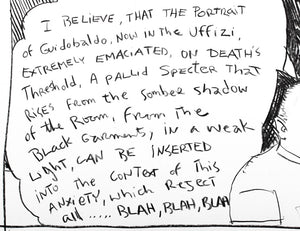 I BELIEVE, THAT THE PORTRAIT
of Guidobaldo, NOW IN THE UFFIZI,
EXTREMELY EMACIATED, ON DEATH'S
Threshold, A PALLID SPECTER THAT
RISES FROM THE SOMBER SHADOW
of the Room, FROM THE
BLACK GARMENTS, in a weak
Light, CAN BE INSERTED
INTO THE CONTEXT OF THIS
ANXIETY, which REJECT
all ..... BLAH, BLAH, BLAH